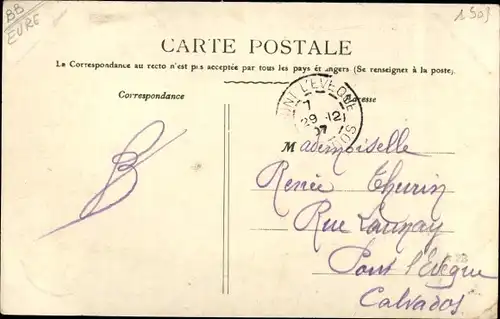 BB
EURE
CARTE POSTALE
La Correspondance au recto n'est pas acceptée par tous les pays étrangers (Se renseigner à la poste).
Correspondance
Adresse
PONT L'EVEQUE
7
29 -12
07
CALVADOS
B
Mademoiselle
Renée Thurin
Rue Launay
Pont l'Evêque
Calvados